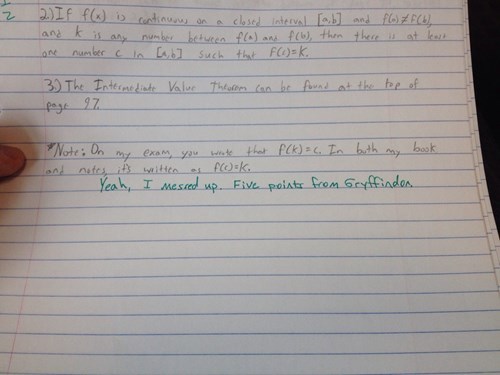 1
2
2.) If f(x) is continuous on a closed interval [a,b] and f(a)≠f(b),
and k is any number between f(a) and f(b), then there is at least
one number c in [a,b] such that f(c)=k.
3.) The Intermediate Value Theorem can be found at the top of
page 97.
*Note: On my exam, you wrote that f(k)=c. In both my book
and notes, it's written as f(c)=k.
Yeah, I messed up. Five points from Gryffindor.